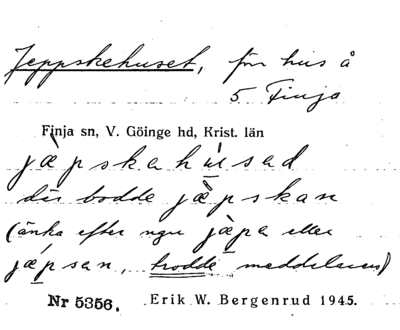 Jeppskehuset, förr hus å
5 Finja
Finja sn, V. Göinge hd, Krist. län
jæ̀pskahúsad
där bodde jæ̀pskan
(änka efter ngn jæ̀pa eller
jæ̀psan, trodde meddelaren)
Nr 5356. Erik W. Bergenrud 1945.